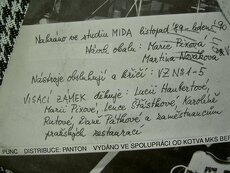 Nahráno ve studiu MIDA listopad '89 - leden '90
Návrh obalu: Marie Pixová
Martina Nováková
Nástroje obsluhují a křičí: VZ N81-5
VISACÍ ZÁMEK děkuje: Lucii Haubertové,
Marii Pixové, Lence Šťástkové, Karolině
Rutové, Daně Pátkové a zaměstnancům
pražských restaurací
PUNC DISTRIBUCE: PANTON VYDÁNO VE SPOLUPRÁCI OD KOTVA MKS BE